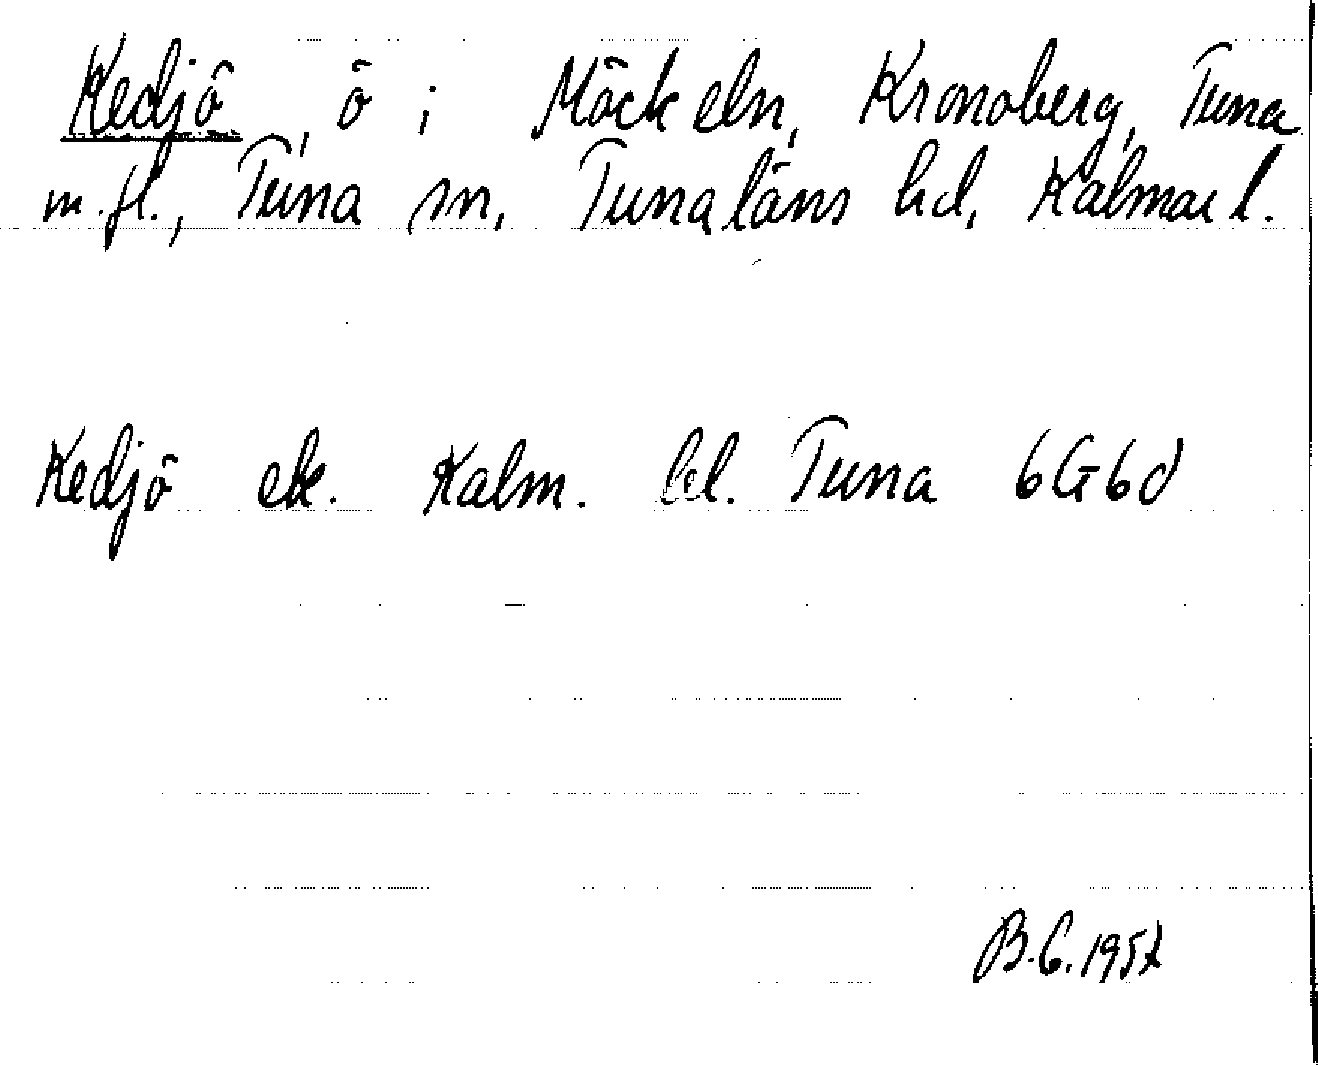 Kedjö, ö i Möckeln, Kronoberg, Tuna
m.fl., Tuna sn, Tunaläns hd, Kalmar l.
Kedjö ek. Kalm. bl. Tuna 6G6d